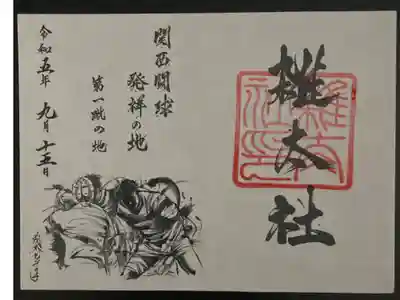 雜太社
関西闘球
発祥の地
第一蹴の地
令和五年 九月 十五日